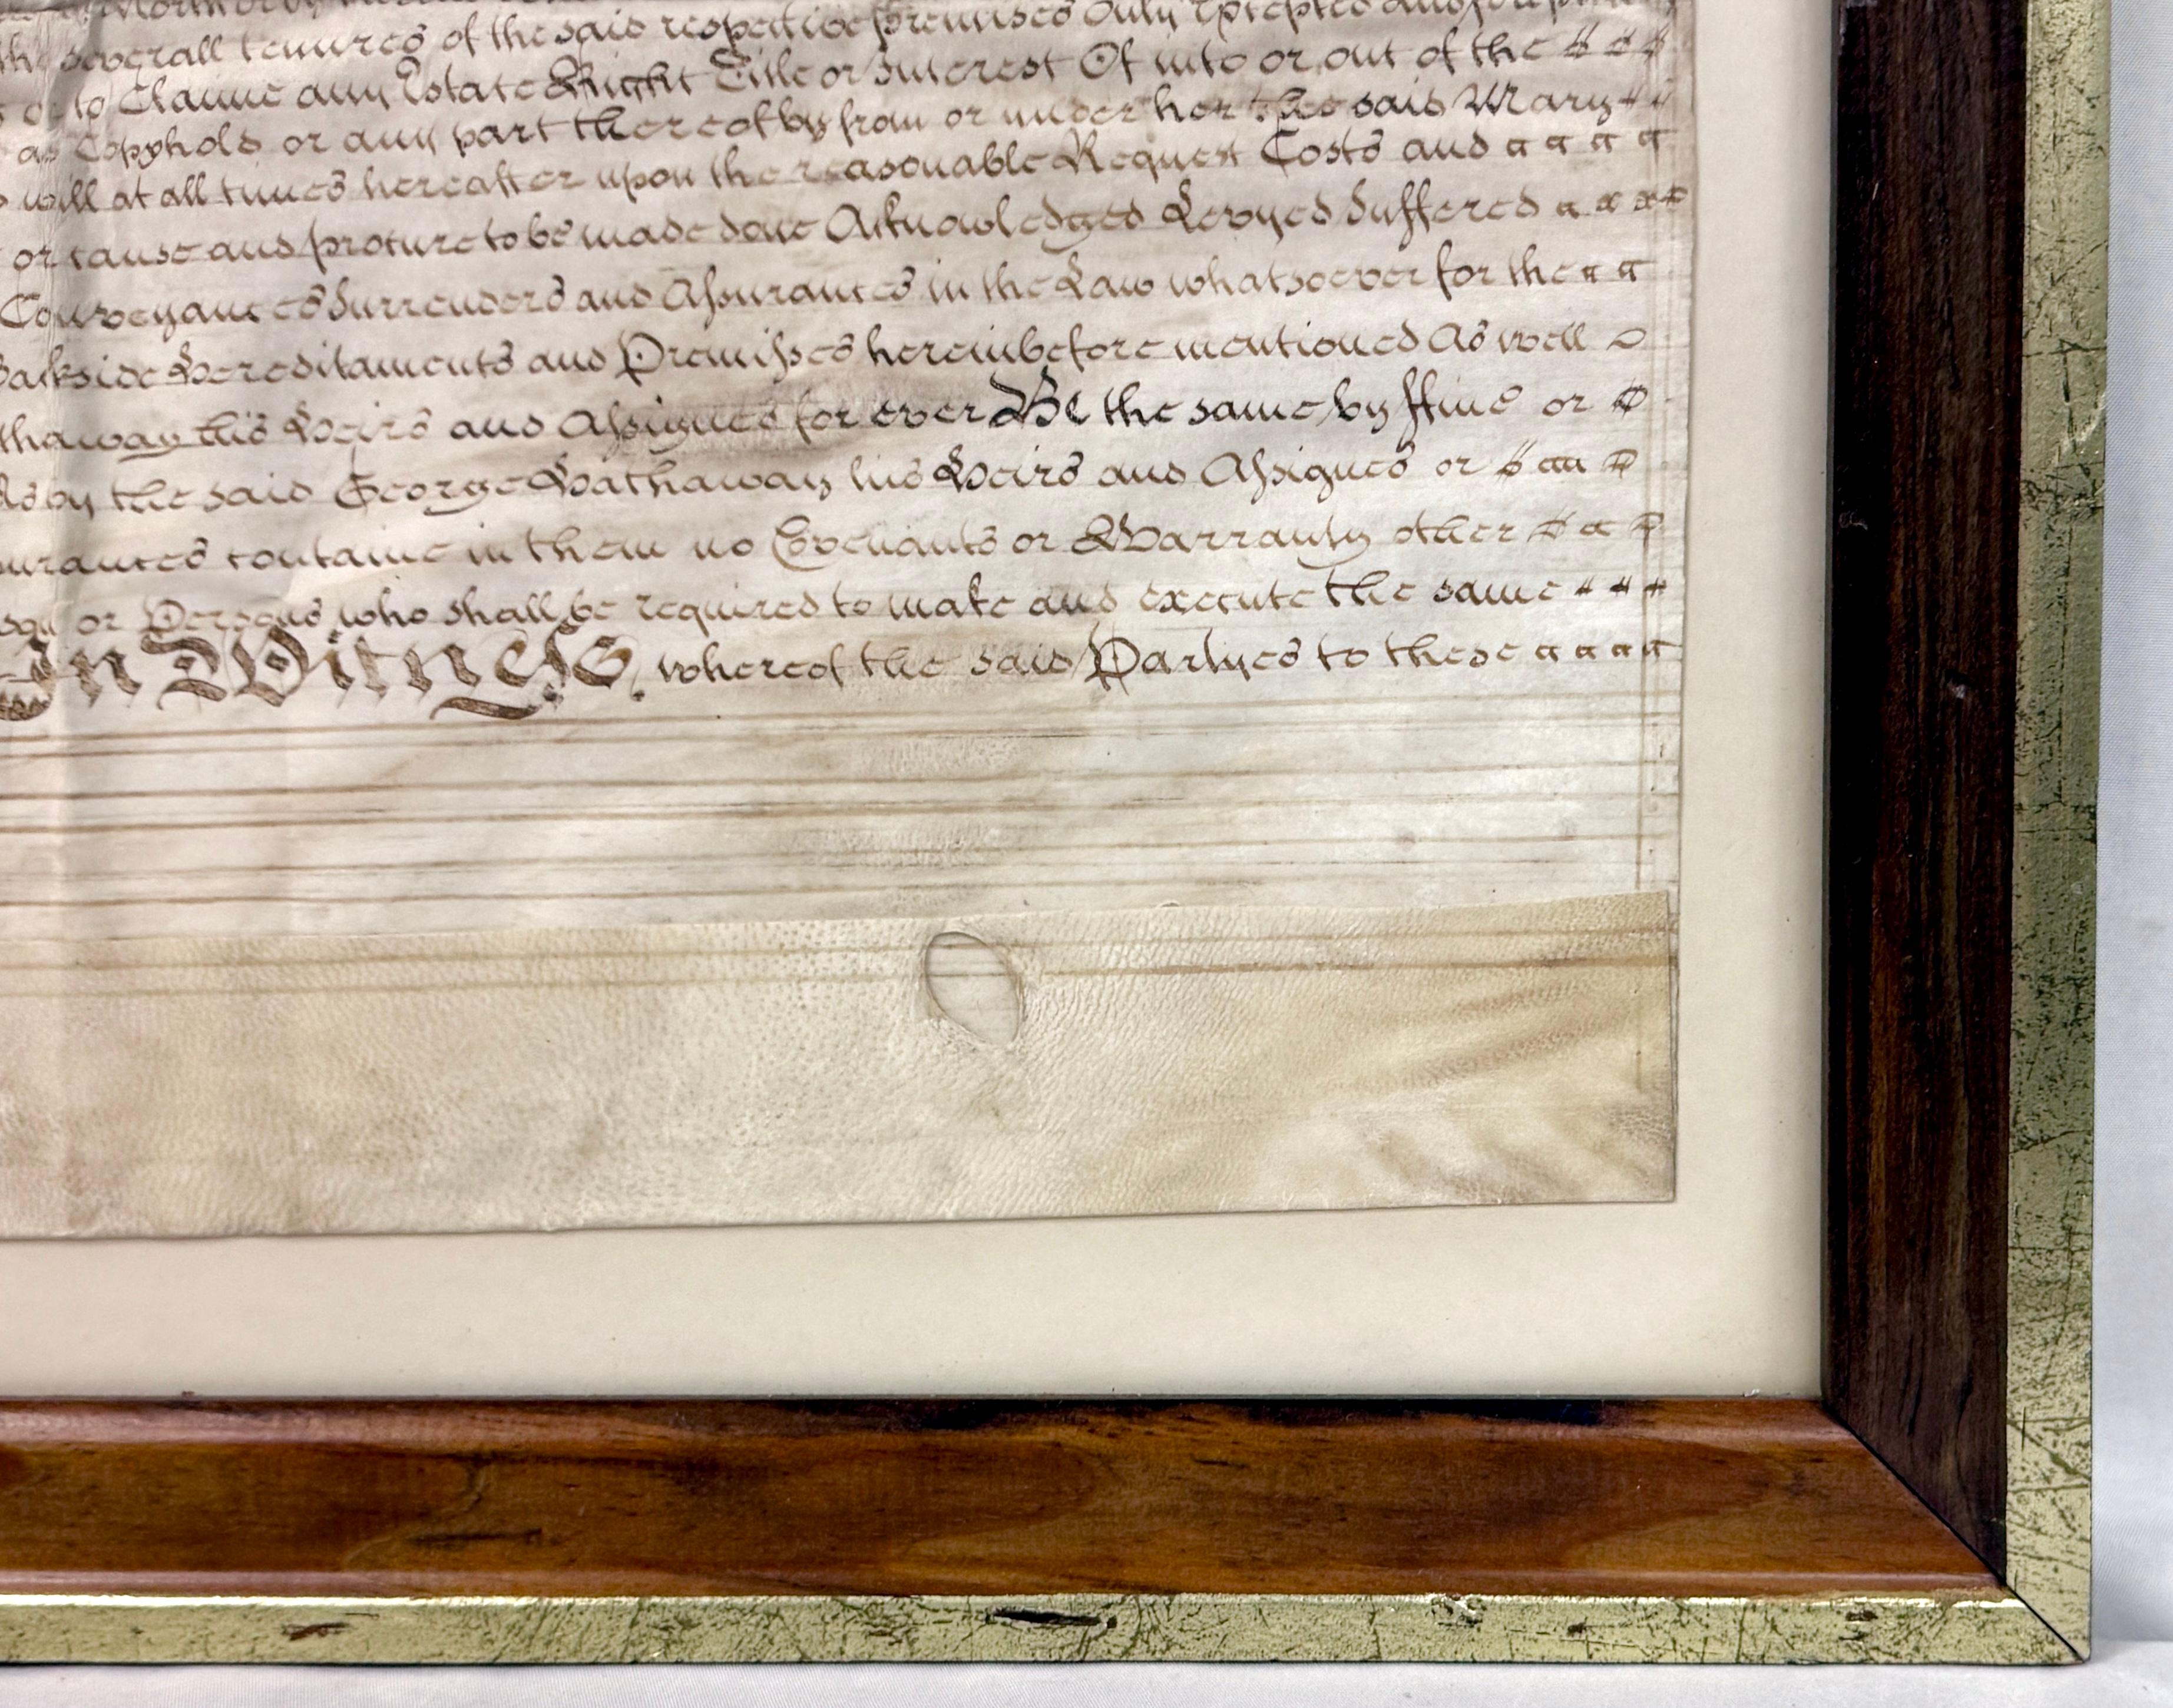 the severall tenures of the said respective premises only Excepted and
or to Claime any Estate Right Title or Interest Of into or out of the
as Copyhold or any part thereof by from or under her the said Mary
will at all times hereafter upon the reasonable Request Costs and
or cause and procure to be made done Acknowledged Levyed Suffered
Conveyances Surrenders and Assurances in the Law whatsoever for the
Backside Hereditaments and Premisses hereinbefore mentioned As well
thaway his Heirs and Assignes for ever Be the same by ffine or
As by the said George Hathaway his Heirs and Assignes or
urances containe in them no Covenants or Warranty other
or Persons who shall be required to make and execute the same
In Witness whereof the said Partyes to these